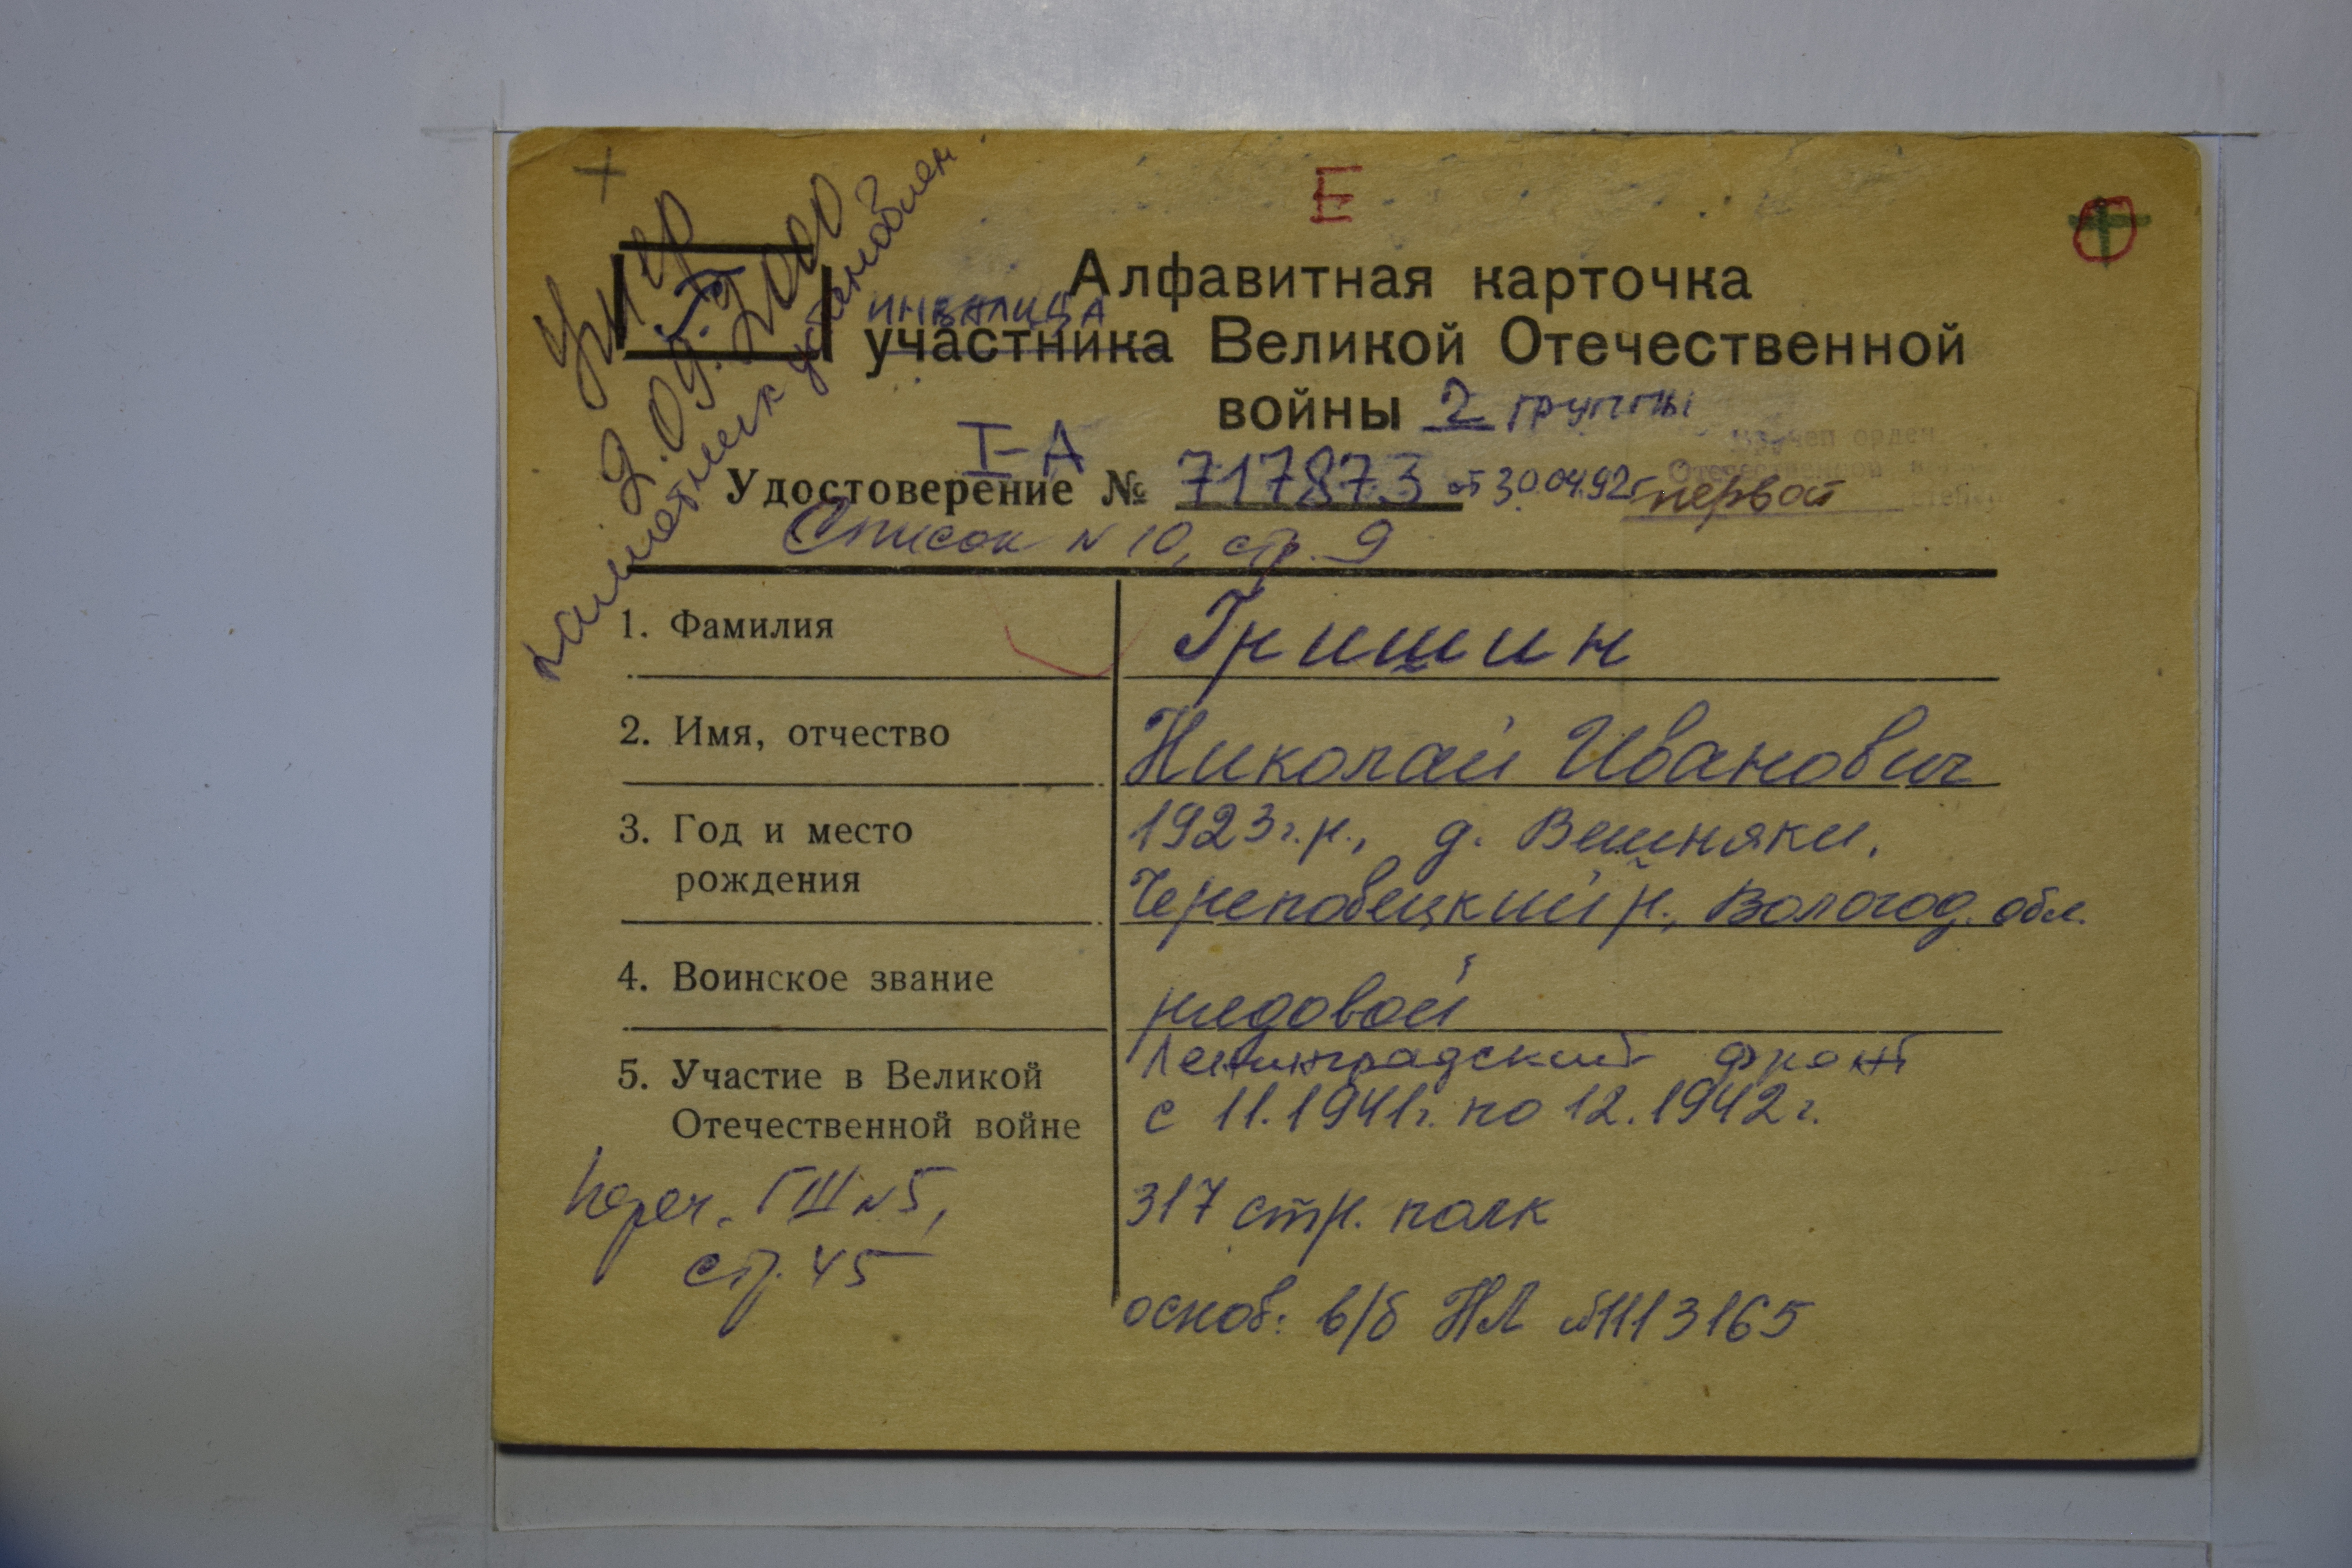 Е
умер
2.09.2000
памятник установлен
Г
Алфавитная карточка
инвалида
участника Великой Отечественной
войны 2 группы
I-А
Вручен орден
Отечественной в
степ
Удостоверение № 717873 от 30.04.92г первой
Список N 10, стр. 9
1. Фамилия
Гришин
2. Имя, отчество
Николай Иванович
3. Год и место
рождения
1923г.р., д. Вешняки,
Череповецкий р., Вологод. обл.
4. Воинское звание
рядовой
5. Участие в Великой
Отечественной войне
Ленинградский фронт
с 11.1941г. по 12.1942г.
Переч. ГШ N5,
стр. 45
317 стр. полк
основ: в/б НЛ №1113165